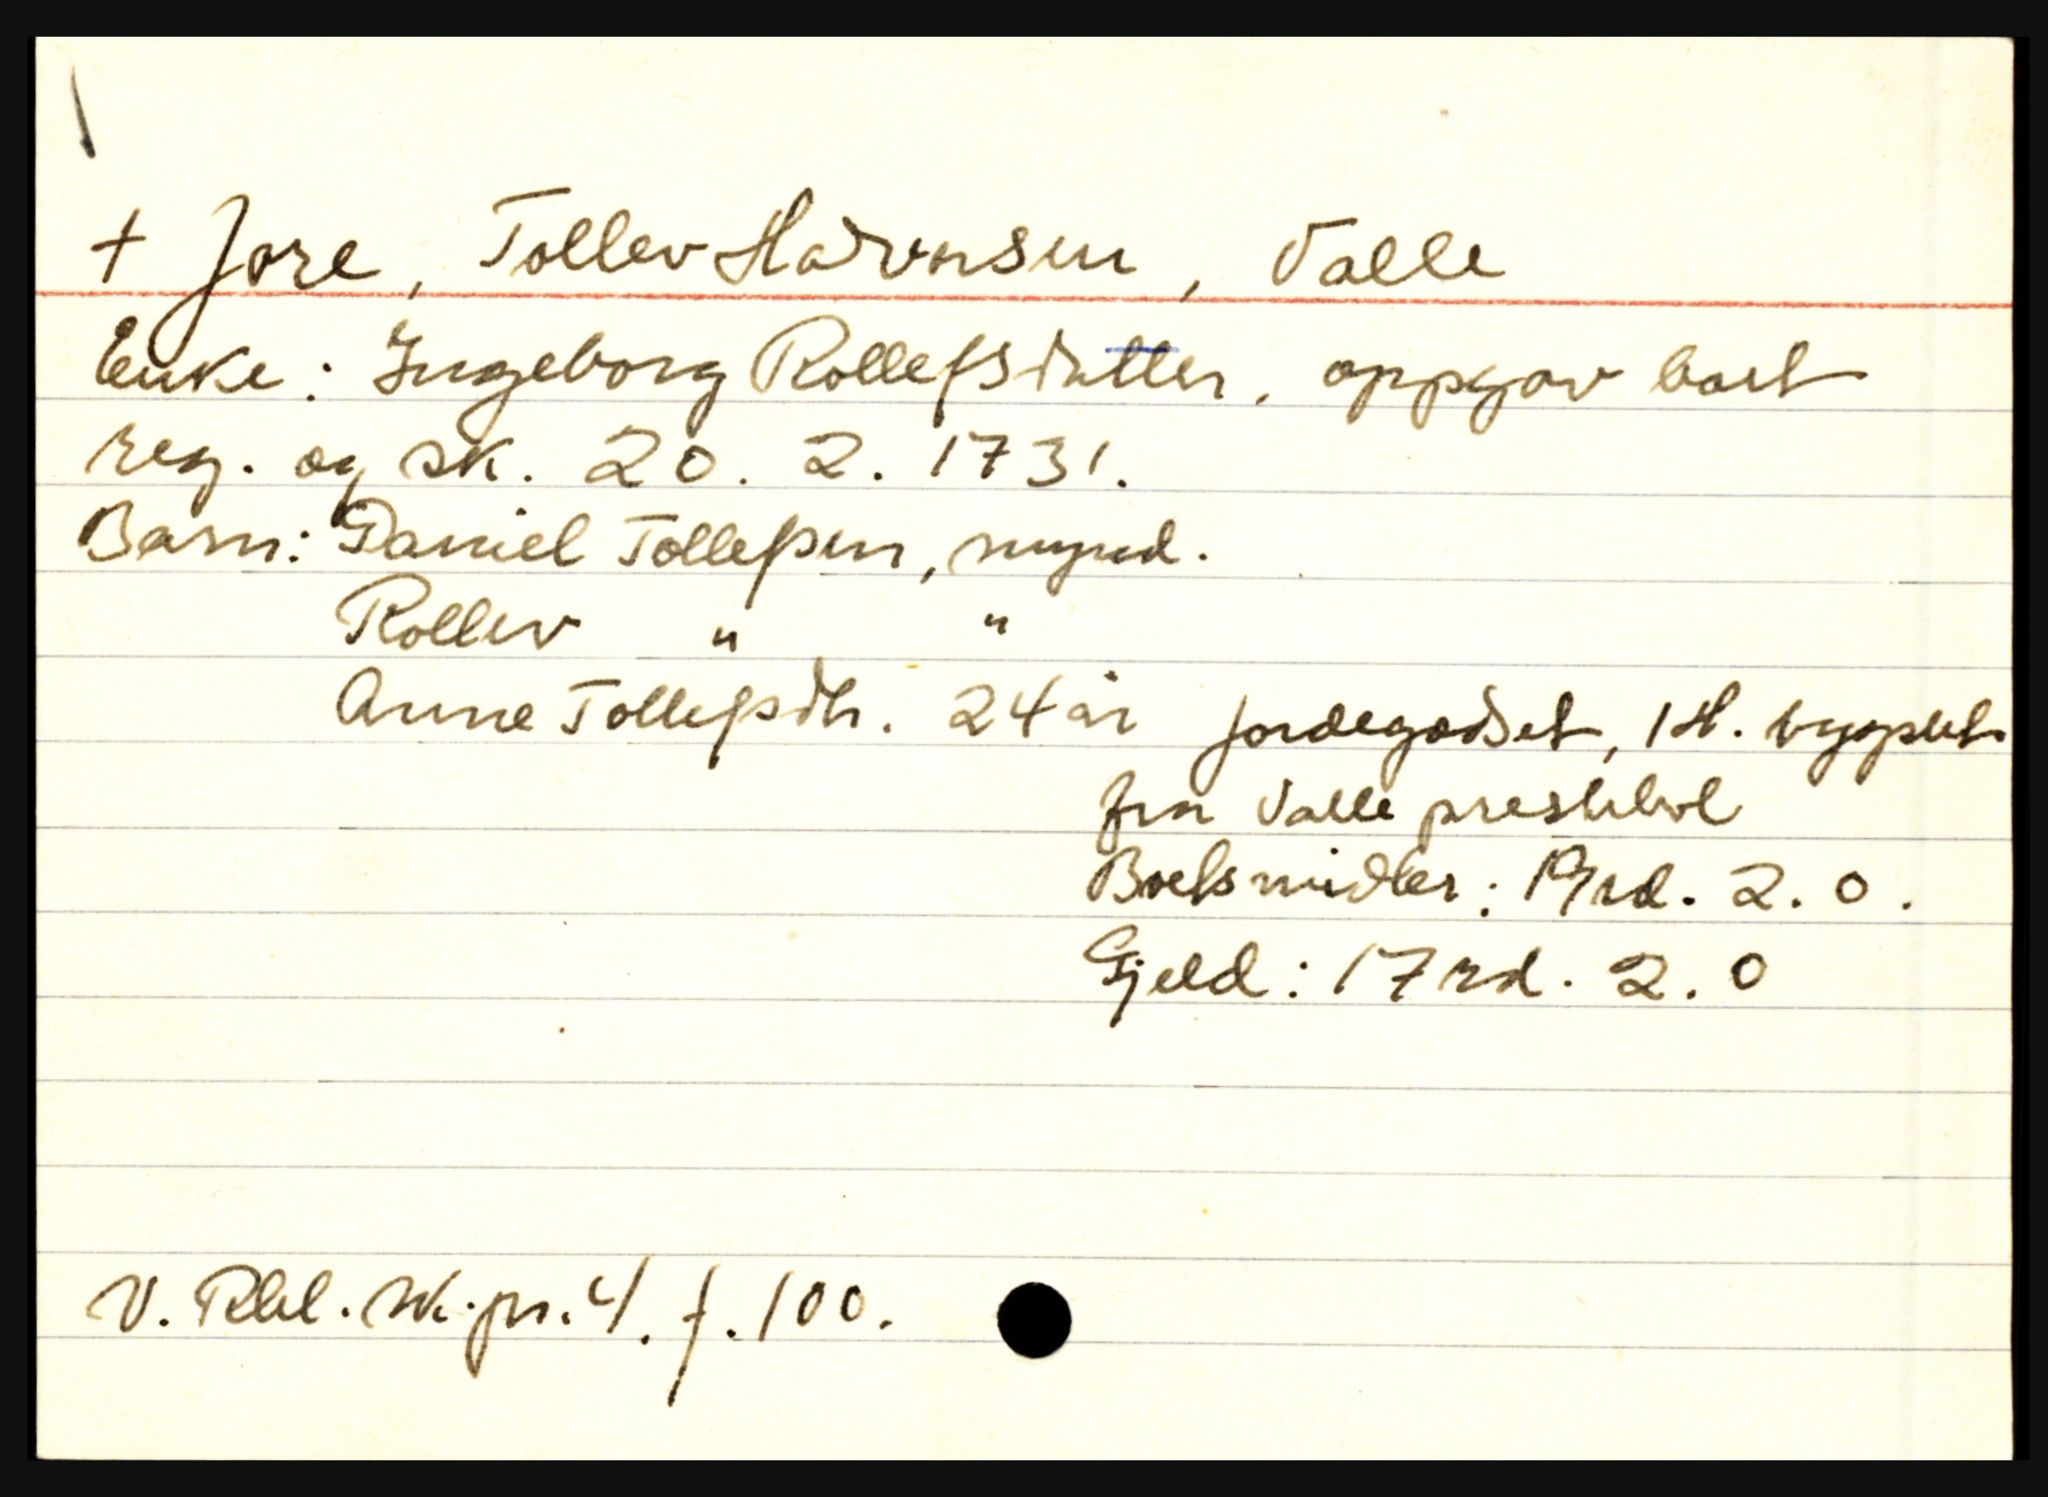 + Jore, Tollev Halvorsen, Valle
Enke: Ingeborg Rollefsdatter, oppgav boet
reg. og sk. 20. 2. 1731.
Barn: Daniel Tollefsen, mynd.
Rollev " "
Anne Tollefsdtr. 24 år jordegodset, 1 H. bygslet
fra Valle prestebol
Boets midler: rd. 2. 0.
Gjeld: 17 rd. 2. 0
V. Rbl. sk. pr. 4. f. 100.